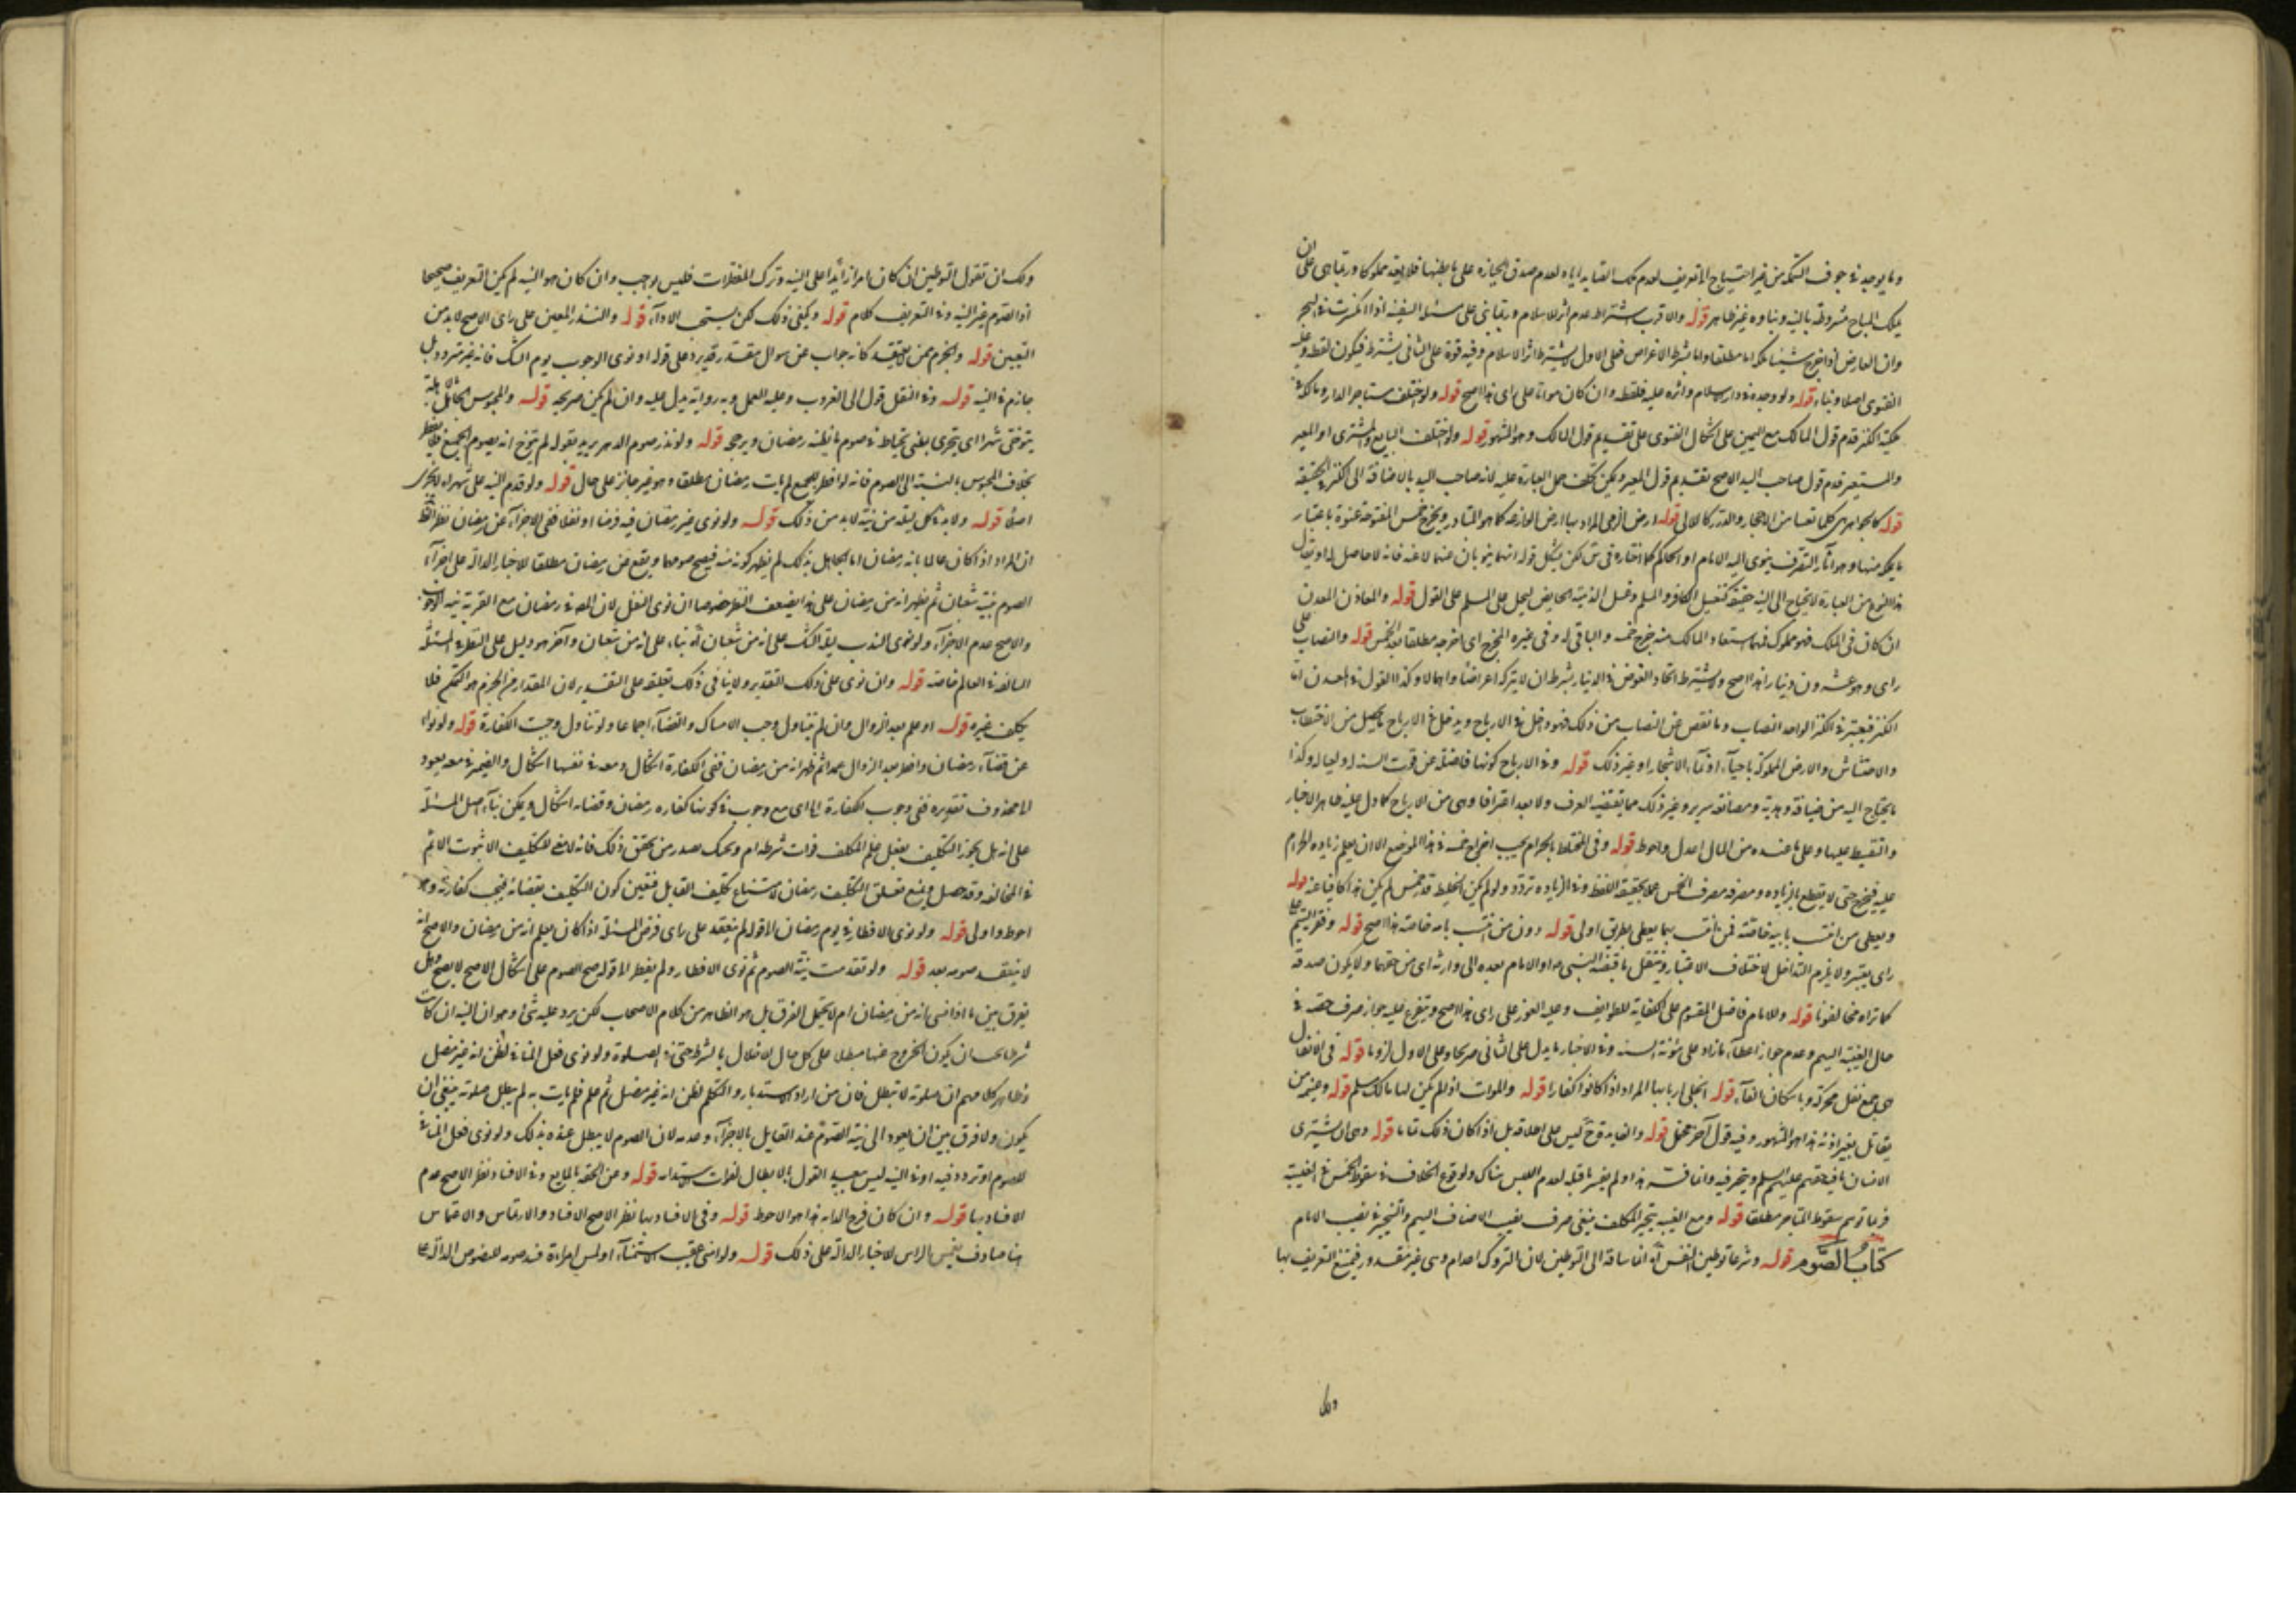 وما يوجد في جوف السمكة من غير احتياج الى تعريف لعدم صدق الحيازة على ما بطنها فلا يقع مملوكا وربما بنى على ان
تملك المباح مشروطة بالنية وبناوه غير ظاهر قوله والاقرب اشتراط عدم اثر الاسلام وربما بنى على مسئلة السفينة اذا انكسرت في البحر
وان العارض اذا خرج شيئا ملكه اما مطلقا واما بشرط الاعراض فعلى الاول يشترط اثر الاسلام وفيه قوة على الثاني يشترط فيكون لقطة وعليه
الفتوى اصلا وبناء قوله ولو وجده في دار الاسلام واثره عليه فلقطة وان كان مواتا على راى هذا اصح قوله ولو اختلف مستاجر الدار ومالكه في
ملكية الكنز قدم قول المالك مع اليمين على اشكال الفتوى على تقديم قول المالك وهو المشهور قوله ولو اختلف البايع والمشترى او المعير
والمستعير قدم قول صاحب اليد الاصح تقديم قول المعير ويمكن حمل العبارة عليه لانه صاحب اليد بالاضافة الى الكنز في الحقيقة
قوله كالجواهر من الاحجار والدرر كاللالي قوله ارض الذمى المراد بها ارض الزراعة كما هو المتبادر ويخرج خمس المفتوحة عنوة باعتبار
ما يملك منها وهو اثار التصرف ينوى اليه الامام او الحاكم كما اختاره في س لكن يشكل قوله انهما ينويان عنهما لا عنه فانه لا حاصل له او يقال
هذا النوع من العبارة لا يحتاج الى النية حقيقة كتغسيل الكافر والمسلم وغسل الذمية الحايض ليحل على المسلم على القول قوله والمعادن المعدن
ان كان في الملك فهو مملوك فلما استفاد المالك منه خرج خمسه والباقى له وفي غيره المخرج اى اخرجه مطلقا بعد الخمس قوله والنصاب على
راى وهو عشرون دينارا هذا اصح ولا يشترط اتحاد العوض في الدينار بشرط ان لا يتركه اعراضا واهمالا وكذا القول في المعدن اما
الكنز فيعتبر في الكنز الواحد النصاب وما نقص عن النصاب من ذلك فهو داخل في الارباح ويدخل في الارباح ما يحصل من الاحتطاب
والاحتشاش والارض المملوكة باحياء او نماء الاشجار او غير ذلك قوله وفي الارباح كونها فاضلة عن قوت السنة له ولعياله وكذا
ما يحتاج اليه من ضيافة وهدية ومصانعة وغير ذلك مما يقتضيه العرف ولا بعد وهي من الارباح كما دل عليه ظاهر الاخبار
والتقسيط عليها وعلى ما عنده من المال اعدل واحوط قوله وفي المختلط بالحرام يجب اخراج خمسه في هذا الموضع الا ان يعلم زيادة الحرام
عليه فيخرج حتى لا يقطع بالزيادة ومصرفه مصرف الخمس عملا بحقيقة اللفظ وفي الزيادة تردد ولو لم يكن الخليط قد خمس لم يكن هذا كافيا عنه قوله
ويعطى من انتسب بابيه خاصة فمن انتسب بهما يعطى بطريق اولى قوله دون من انتسب بامه خاصة هذا اصح قوله وفقر اليتيم على
راى يعتبر ولا يلزم التداخل لاختلاف الاعتبار وينتقل ما قبضه النبي او الامام بعده الى وارثه اى من حقهما ولا يكون صدقة
كما تراه مخالفونا قوله وللامام فاضل المقسوم على الكفاية للطوايف وعليه العوز على راى هذا اصح ويتفرع عليه جواز صرف حصته في
حال الغيبة اليهم وعدم جواز اعطاء ما زاد على مؤنة السنة وفي الاخبار ما يدل على الثاني صريحا وعلى الاول لزوما قوله في الانفال
هي جمع نفل محركة وباسكان الفاء قوله انجلى اربابها المراد اذا كانوا كفارا قوله والموات اذا لم يكن لها مالك مسلم قوله وغنيمة من
يقاتل بغير اذنه هذا هو المشهور وفيه قول آخر محتمل قوله والفايدة ح ليس على اطلاقه بل اذا كان ذلك متاعا قوله وهي ان يشترى
الانسان ما فيه حقهم عليهم السلم ويتجر فيه وانما فسره هذا ولم يفسر ما قبله لعدم اللبس هناك ولوقوع الخلاف في سقوط الخمس في الغيبة
فربما توهم سقوط المتاجر مطلقا قوله ومع الغيبة يتخير المكلف ينبغى صرف نصيب الاصناف اليهم والتخيير في نصيب الامام
كتاب الصوم قوله وشرعا توطين النفس آه انما ساقه الى التوطين لان التروك اعدام وهي غير مقدور فيمتنع التعريف بها
ولك
ولك ان تقول التوطين ان كان امرا زائدا على النية وترك المفطرات فليس بواجب وان كان هو النية لم يكن التعريف صحيحا
اذ الصوم غير النية وفي التعريف كلام قوله ويكفي ذلك لكن يستحب الاداء قوله والنذر المعين على راى الاصح لا بد من
التعيين قوله والجزم ممن يعتقد كانه جواب عن سوال مقدر تقديره على قوله او نوى الوجوب يوم الشك فانه غير متردد بل
جازم في النية قوله وفي النفل قول الى الغروب وعليه العمل وبه رواية تدل عليه وان لم يكن صريحة قوله والمحبوس الجاهل بالاهلة
يتوخى شهرا اى يتحرى يعني يحتاط في صوم ما يظنه رمضان ويرجحه قوله ولو نذر صوم الدهر يريد بقوله لم يتوخ انه يصوم الجميع فلا يفطر
بخلاف المحبوس بالنسبة الى الصوم فانه لو افطر الجميع لم يات رمضان مطلقا وهو غير جائز على حال قوله ولو قدم النية على شهر او لا يجزى
اصلا قوله ولا بد في كل ليلة من نية لا بد من ذلك قوله ولو نوى غير رمضان فيه فرضا او نفلا ففي الاجزاء عن رمضان نظر
ان المراد اذا كان عالما بانه رمضان اما الجاهل بذلك لم يظهر كونه منه فيصح صومها ويقع عن رمضان مطلقا للاخبار الدالة على اجزاء
الصوم بنية شعبان ثم يظهر انه من رمضان على هذا يضعف النظر خصوصا ان نوى النفل لان الصوم في رمضان مع القربة نية الوجوب
والاصح عدم الاجزاء ولو نوى الندب ليلة الشك على انه من شعبان آه بناء على انه من شعبان وآخر هو دليل على النظر في المسئلة
السالفة في العالم خاصة قوله وان نوى على ذلك التقدير ولا ينافى ذلك تعليقه على التقدير لان المقدار من الجزم هو الممكن فلا
يكلف غيره قوله او علم بعد الزوال وان لم يتناول وجب الامساك والقضاء اجماعا ولو تناول وجبت الكفارة قوله ولو نواه
عن قضاء رمضان وافطر بعد الزوال عمدا ثم ظهر انه من رمضان ففي الكفارة اشكال ومعه في تعينها اشكال والضمير في معه يعود
الى محذوف تقديره ففي وجوب الكفارة اى مع وجوبه في كونها كفارة رمضان وقضائه اشكال ويمكن بناء اصل المسئلة
على انه هل يجوز التكليف بفعل علم المكلف فوات شرطه ام وممن يحقق ذلك فانه لا معنى للتكليف الا ثبوت الاثم
في المخالفة وقد حصل ويمنع تعلق التكليف رمضان لامتناع تكليف الغافل فتعين كون التكليف بقضائه فيجب كفارته وهو
احوط واولى قوله ولو نوى الافطار في يوم رمضان الى قوله لم ينعقد على راى فرض المسئلة اذا كان يعلم انه من رمضان والاصح انه
لا ينعقد صومه بعد قوله ولو تقدمت نية الصوم ثم نوى الافطار ولم يفطر الى قوله صح الصوم على اشكال الاصح لا يصح وهل
يفرق بين ما اذا نسى انه من رمضان ام لا يحتمل الفرق بل هو الظاهر من كلام الاصحاب لكن يرد عليه شئ وهو ان النية ان كانت
شرطا يكون الخروج عنها مبطلا على كل حال الاخلال بالشرط حتى في الصلوة ولو نوى فعل المنافى لظن انه غير مصل
وظاهر كلامهم ان صلوته لا تبطل فان من اراد الاستدبار والتكلم لظن انه غير مصل ثم علم فلم يات به لم يبطل صلوته ينبغى ان
يكون ولا فرق بين ان يعود الى نية الصوم عند القايل بالاجزاء وعدمه لان الصوم لا يبطل عنده بذلك ولو نوى فعل المنافى
للصوم او تردد فيه او في النية ليس ببعيد القول بالابطال لفوات استدامته قوله ومن الحقنة بالمايع وفي الافساد نظر الاصح عدم
الافساد بها قوله وان كان فرج الدابة هذا هو الاحوط قوله وفي الافساد بها نظر الاصح الافساد والارتماس والاغتماس
انما صادف بغمس الراس للاخبار الدالة على ذلك قوله ولو امنى عقيب الاستمناء او لمس امراة فسد صومه للنصوص الدالة على